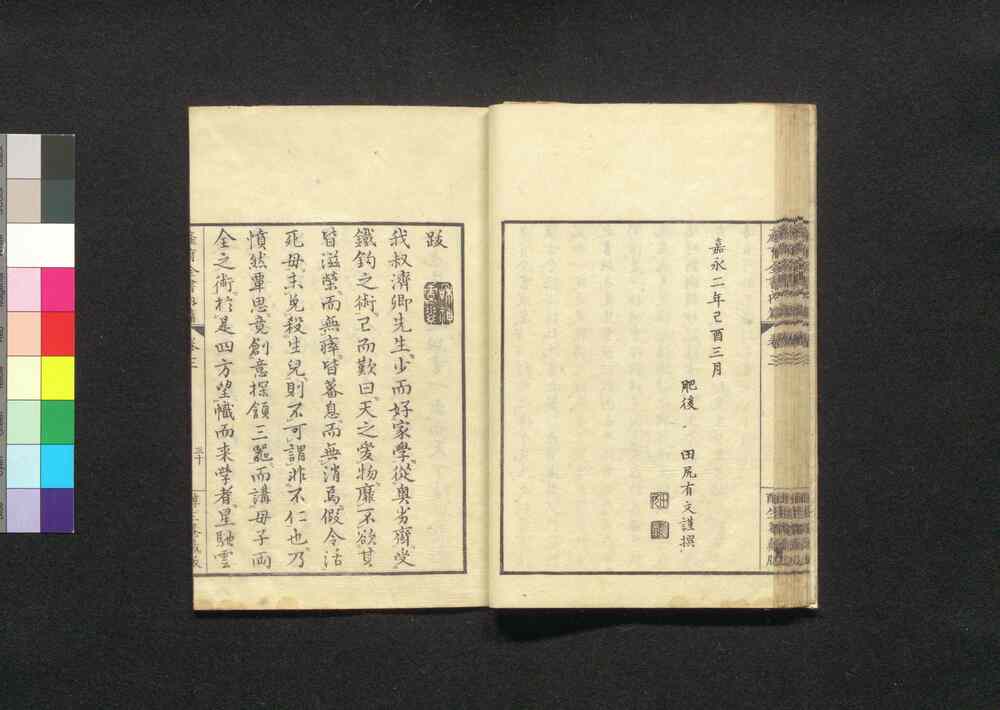 嘉永二年己酉三月
肥後 田尻有文謹撰
跋
我叔濟卿先生少而好家學從奥劣齋受
鐵鈎之術已而歎曰天之愛物靡不欲其
皆滋榮而無瘁皆蕃息而無消焉假令活
死母未免殺生兒則不可謂非不仁也乃
憤然覃思竟創意探頷三器而講母子両
全之術於是四方望幟而来学者星馳雲
三十